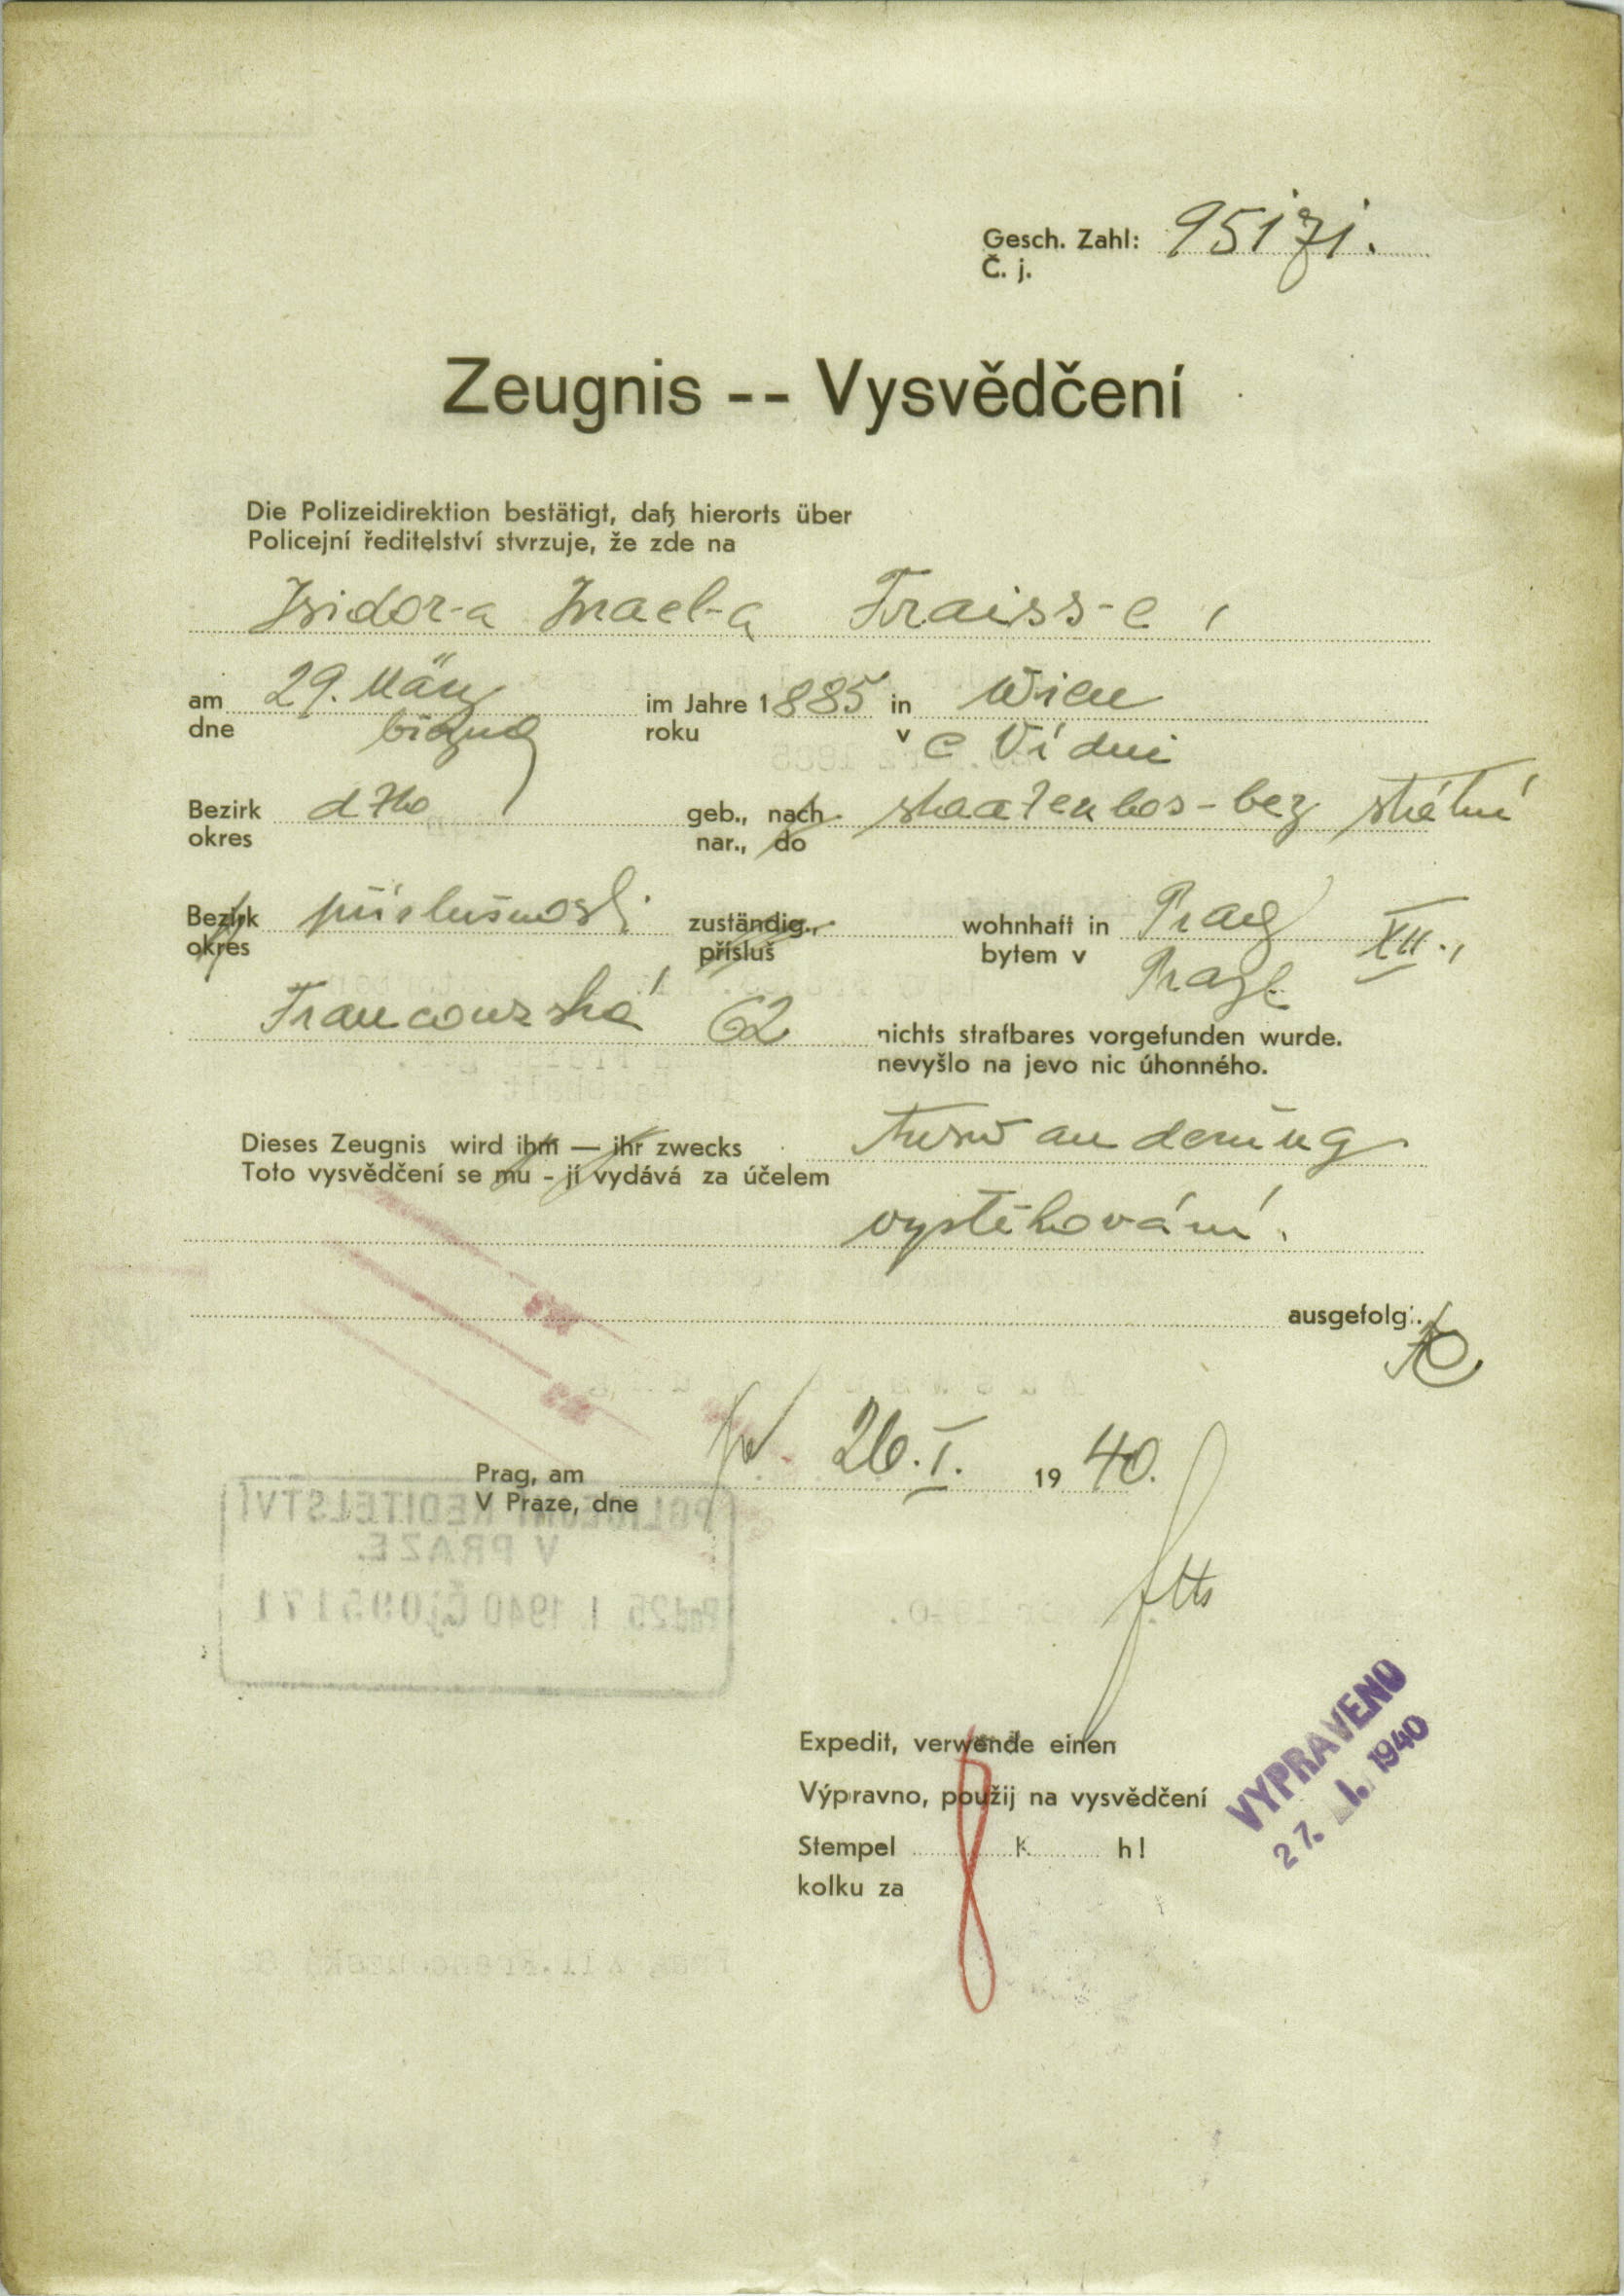 Gesch. Zahl: 95171.
Č. j.
Zeugnis -- Vysvědčení
Die Polizeidirektion bestätigt, daß hierorts über
Policejní ředitelství stvrzuje, že zde na
Isidor-a Israel-a Fraiss-e,
am 29. März im Jahre 1885 in Wien
dne března roku v e Vídni
Bezirk dto geb., nach staatenlos - bez státní
okres nar., do
Bezirk příslušnosti zuständig., wohnhaft in Prag XII.,
okres přísluš bytem v Praze
Francouzská 62 nichts strafbares vorgefunden wurde.
nevyšlo na jevo nic úhonného.
Dieses Zeugnis wird ihm — ihr zwecks Auswanderung
Toto vysvědčení se mu - jí vydává za účelem
vystěhování.
ausgefolgt.
Prag, am 26. I. 1940.
V Praze, dne
POLICEJNÍ ŘEDITELSTVÍ
V PRAZE.
Pod 25 I 1940 Čj 095171
Expedit, verwende einen
Výpravno, použij na vysvědčení
Stempel K h!
kolku za
VYPRAVENO
27. I. 1940